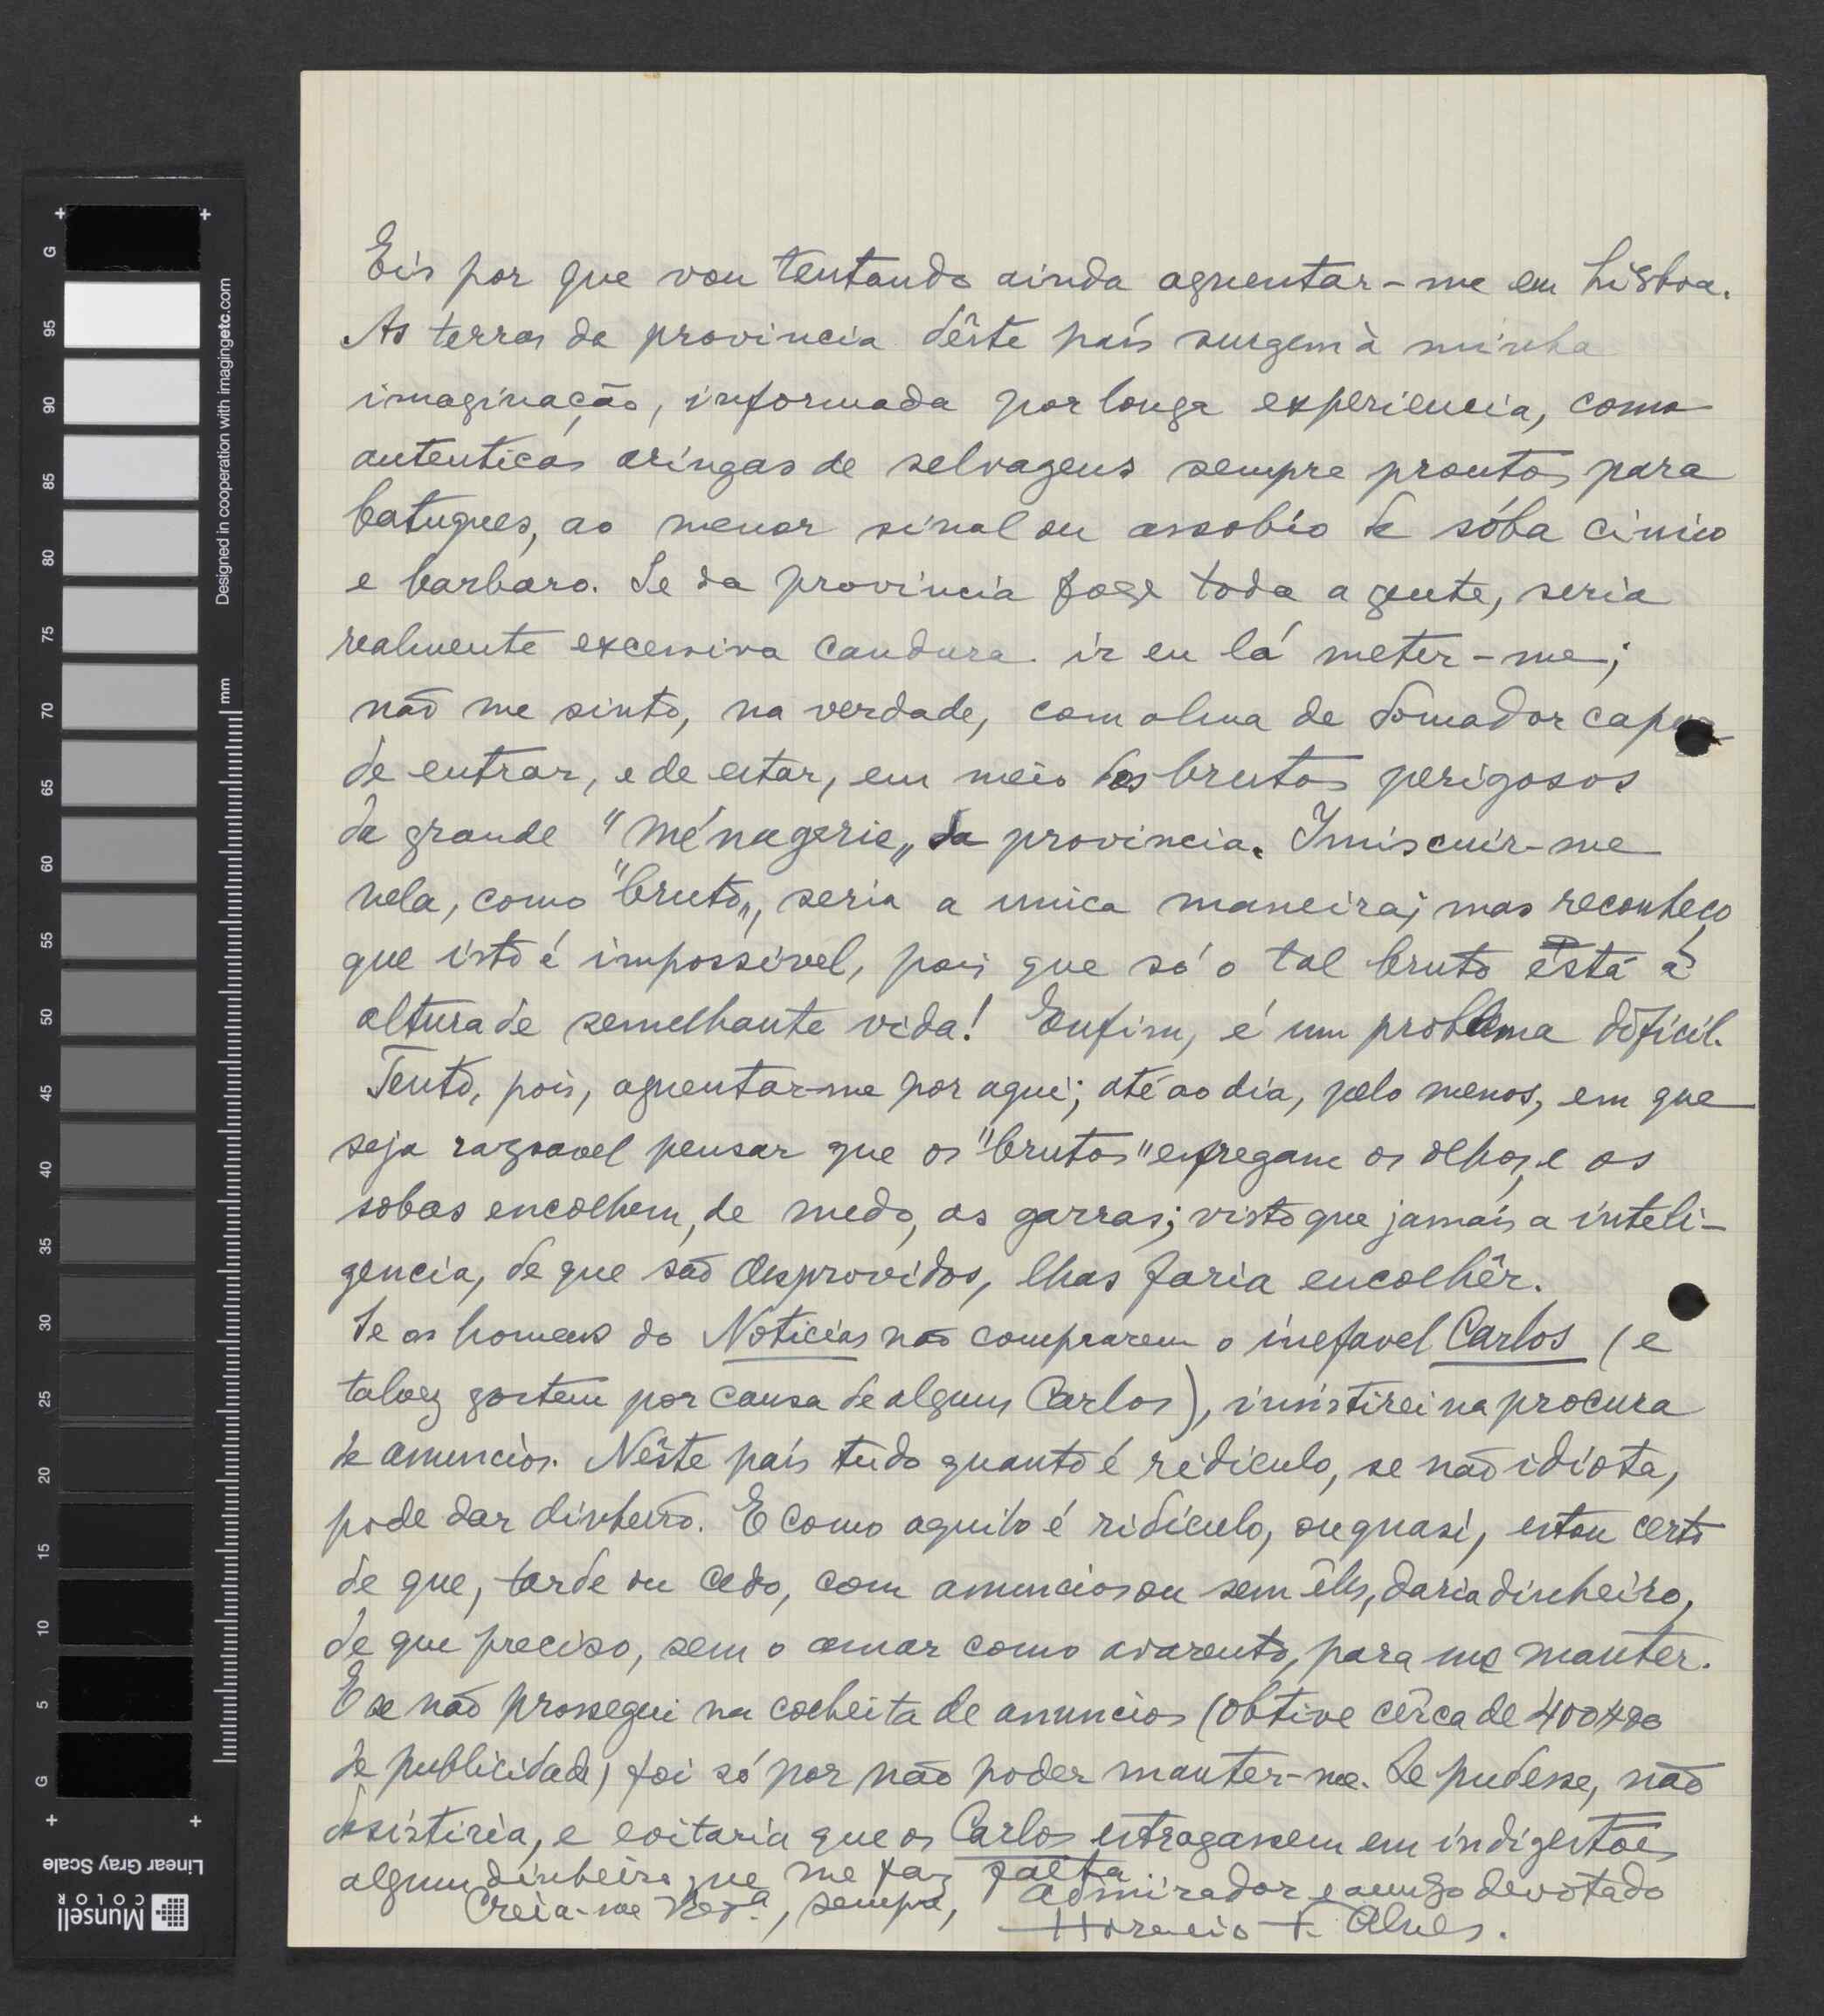 Eis por que vou tentando ainda aguentar-me em Lisboa.
As terras da provincia dêste país surgem à minha
imaginação, informada por longa experiencia, como
autenticas aringas de selvagens sempre prontos para
batuques, ao menor sinal ou assobio de sóba cinico
e barbaro. Se da provincia foge toda a gente, seria
realmente excessiva candura ir eu lá meter-me;
não me sinto, na verdade, com alma de domador capaz
de entrar, e de estar, em meio dos brutos perigosos
da grande "ménagerie" da provincia. Imiscuir-me
nela, como "bruto", seria a unica maneira; mas reconheço
que isto é impossivel, pois que só o tal bruto está à
altura de semelhante vida! Enfim, é um problema dificil.
Tento, pois, aguentar-me por aqui; até ao dia, pelo menos, em que
seja razoavel pensar que os "brutos" esfregam os olhos, e os
sobas encolhem, de medo, as garras; visto que jamais a inteli-
gencia, de que são desprovidos, lhas faria encolhêr.
Se os homens do Noticias não comprarem o inefavel Carlos (e
talvez gostem por causa de alguns Carlos), insistirei na procura
de anuncios. Nêste país tudo quanto é ridiculo, se não idiota,
pode dar dinheiro. E como aquilo é ridiculo, ou quasi, estou certo
de que, tarde ou cedo, com anuncios ou sem êles, daria dinheiro,
de que preciso, sem o amar como avarento, para me manter.
E se não prossegui na colheita de anuncios (obtive cêrca de 400$00
de publicidade) foi só por não poder manter-me. Se pudesse, não
desistiria, e evitaria que os Carlos estragassem em indigestões
algum dinheiro que me faz falta.
Creia-me sempre, admirador e amigo devotado
Horacio F. Alves.
Designed in cooperation with imagingetc.com
mm
G 95 90 85 80 75 70 65 60 55 50 45 40 35 30 25 20 15 10 5 G
Munsell
COLOR
Linear Gray Scale